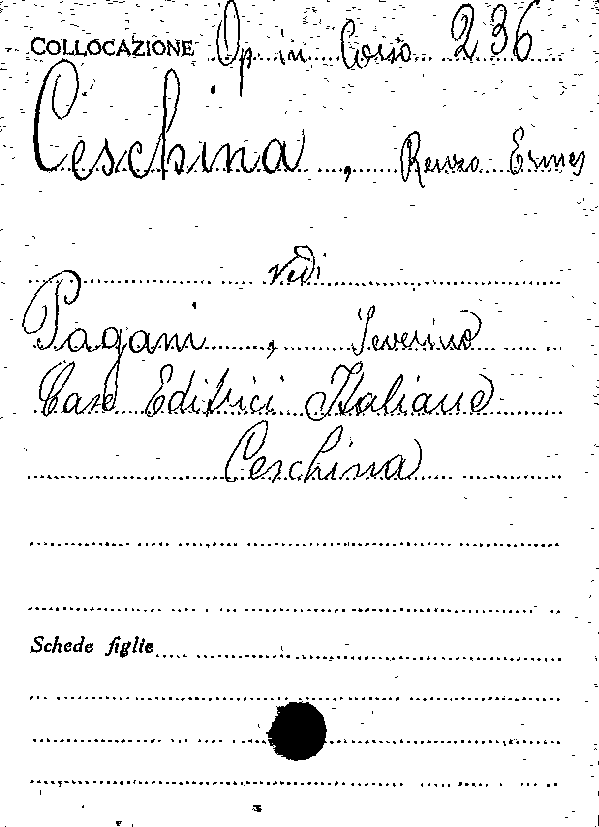 COLLOCAZIONE Op in Corso 236
Ceschina, Renzo Ermes
vedi
Pagani, Severino
Case Editrici Italiane
Ceschina
Schede figlie